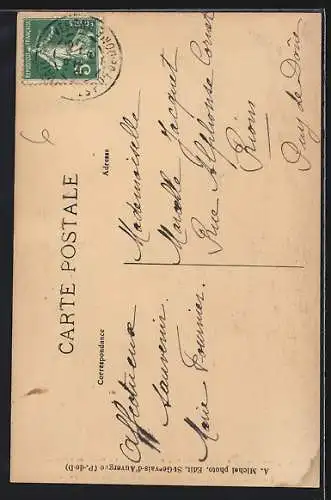 CARTE POSTALE
Correspondance
Adresse
Affectueux
souvenir.
Marie Fournier.
Mademoiselle
Marcelle Jacquet
Rue Alphonse Cornet
Riom
Puy de Dôme
A. Michel photo. Edit. St-Gervais-d'Auvergne (P.-de-D)
6
5